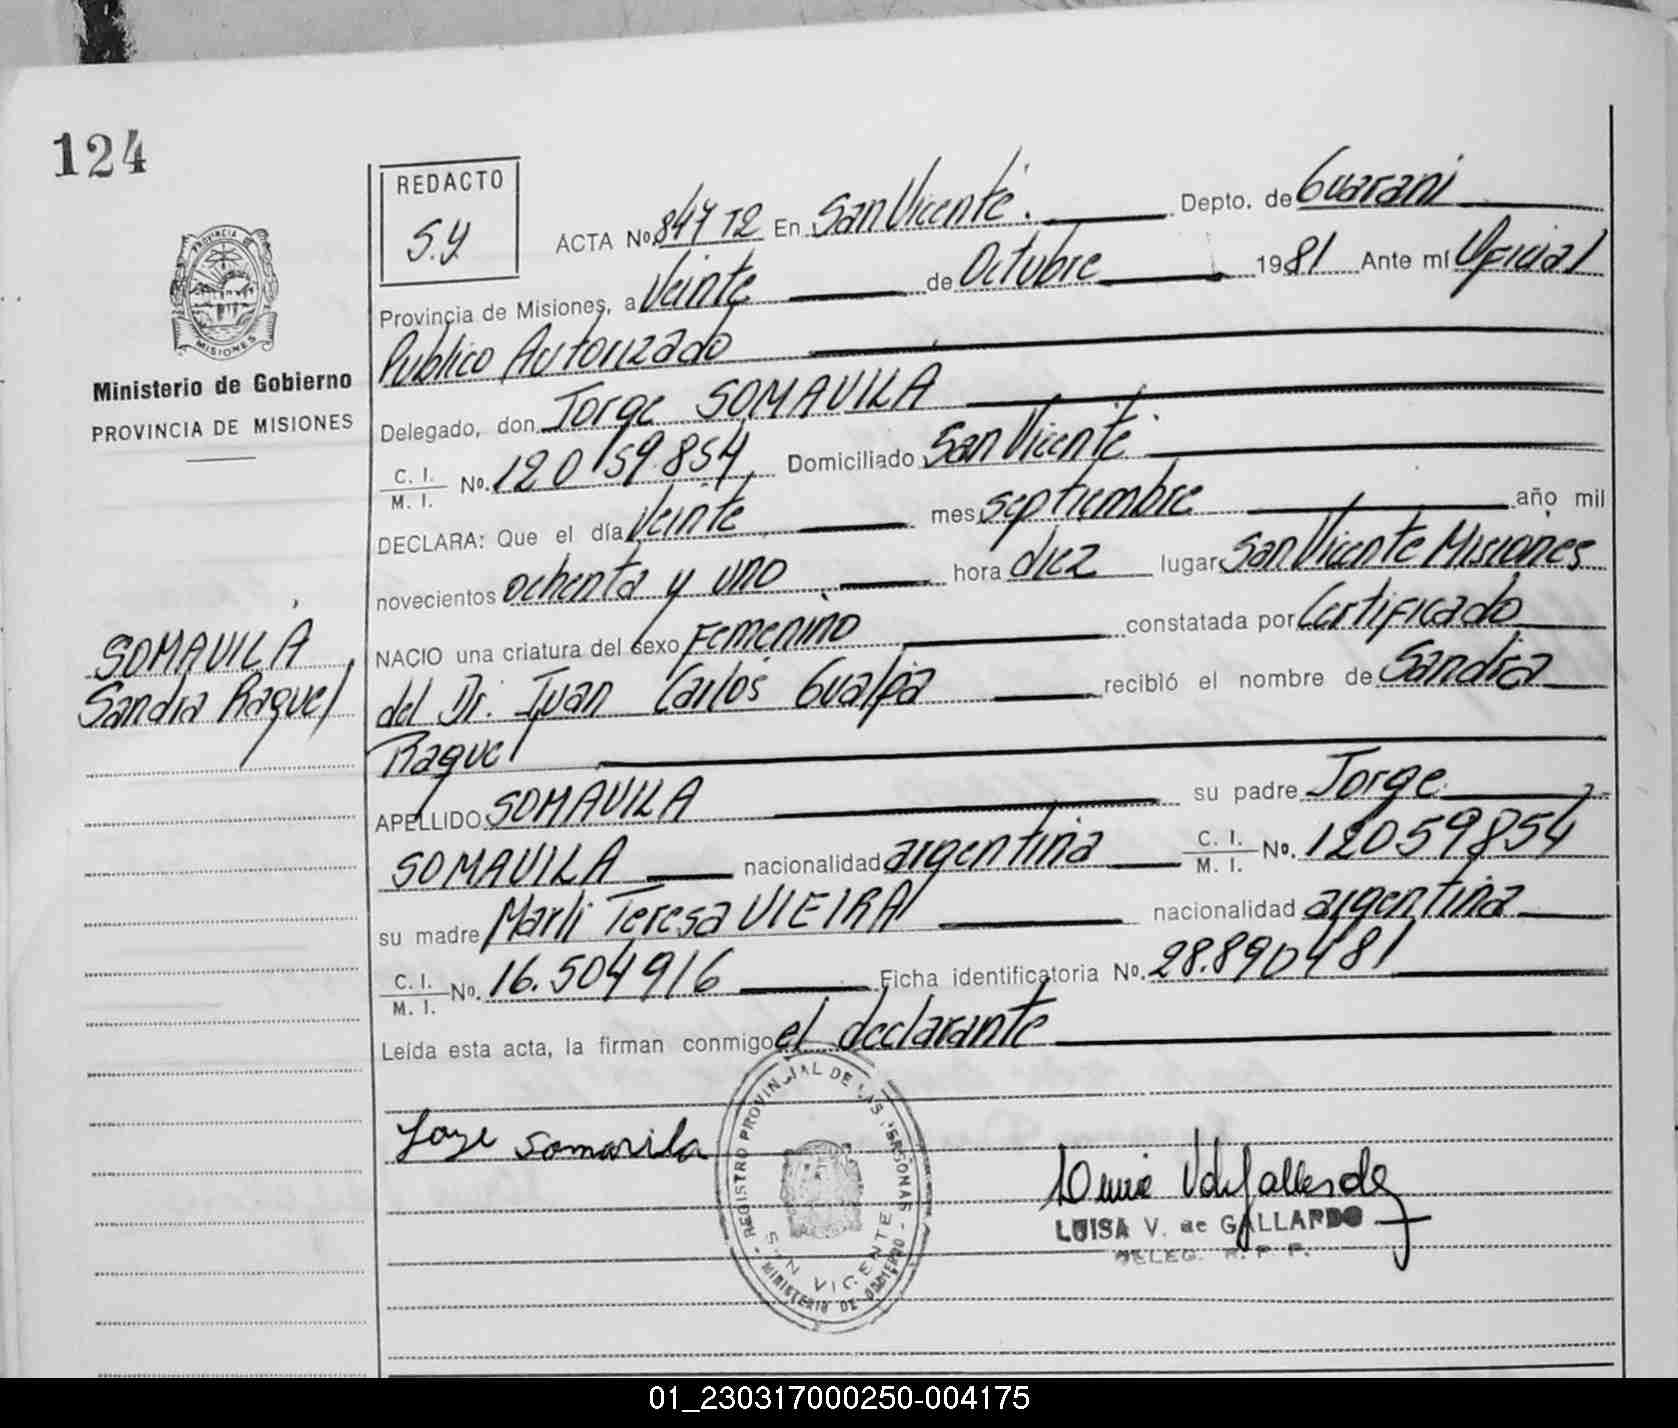 124
REDACTO
S.Y.
ACTA No. 847 T2 En San Vicente. Depto. de Guarani
Provincia de Misiones, a Veinte de Octubre 1981 Ante mí Oficial
Publico Autorizado
Delegado, don Jorge SOMAVILA
C. I.
M. I. No. 12059.854 Domiciliado San Vicente
DECLARA: Que el día Veinte mes septiembre año mil
novecientos ochenta y uno hora diez lugar San Vicente Misiones
NACIO una criatura del sexo Femenino constatada por Certificado
del Dr. Juan Carlos Gualpa recibió el nombre de Sandra
Raquel
APELLIDO SOMAVILA su padre Jorge
SOMAVILA nacionalidad argentina C. I.
M. I. No. 12059854
su madre Marli Teresa VIEIRA nacionalidad argentina
C. I.
M. I. No. 16.504916 Ficha identificatoria No. 28.890481
Leída esta acta, la firman conmigo el declarante
PROVINCIA DE
MISIONES
Ministerio de Gobierno
PROVINCIA DE MISIONES
SOMAVILA,
Sandra Raquel
Jorge Somavila
REGISTRO PROVINCIAL DE LAS PERSONAS
SAN VICENTE
MINISTERIO DE GOBIERNO
LUISA V. de GALLARDO
DELEG. R. P. P.
01_230317000250-004175